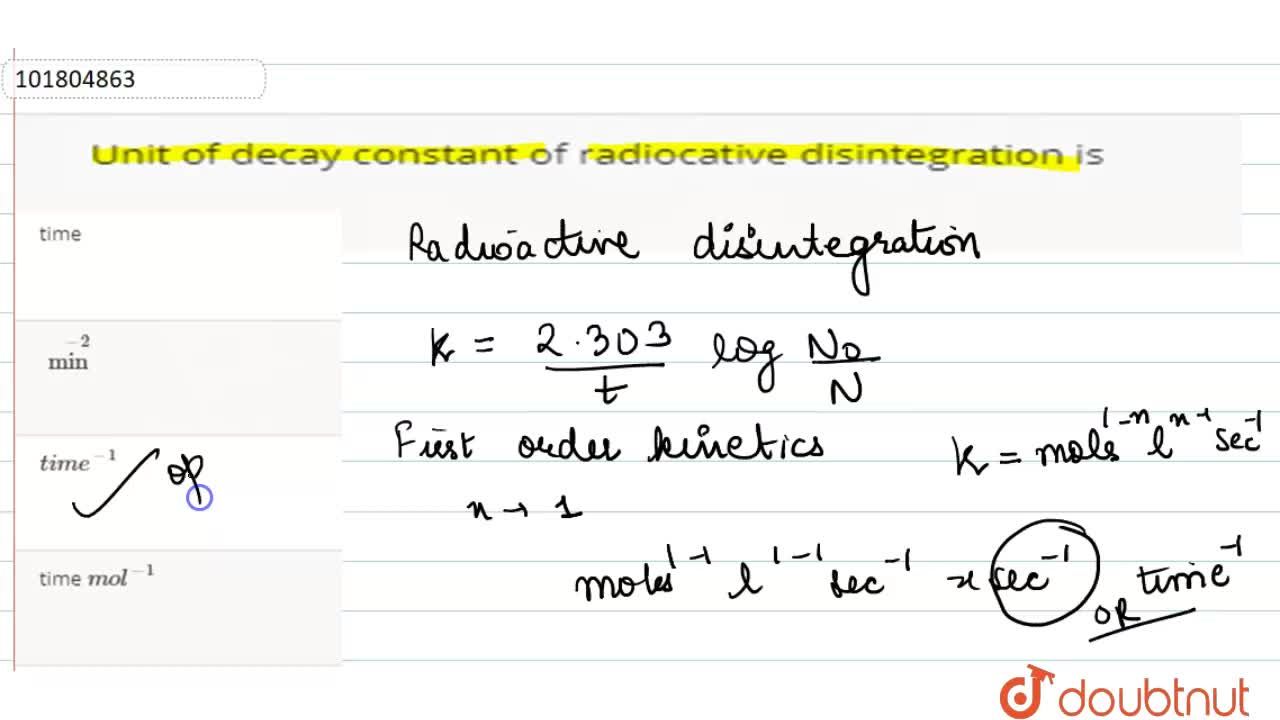 101804863
Unit of decay constant of radiocative disintegration is
time
Radioactive disintegration
min⁻²
K = 2.303/t log N₀/N
time⁻¹ op
First order kinetics
K = mols¹⁻ⁿ lⁿ⁻¹ sec⁻¹
n → 1
time mol⁻¹
moles¹⁻¹ l¹⁻¹ sec⁻¹ x sec⁻¹ OR time⁻¹
doubtnut